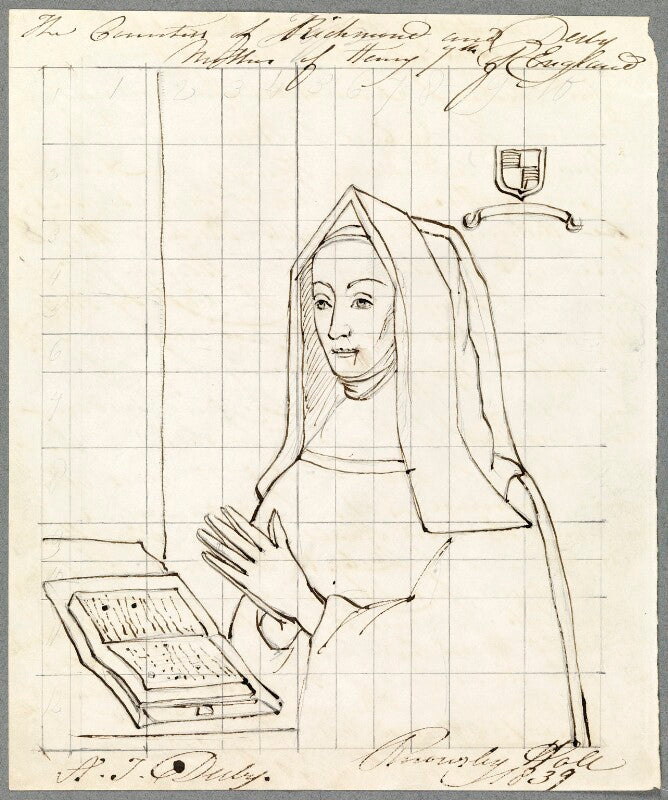 The Countess of Richmond and Derby
Mother of Henry 7th of England
1 1 2 3 4 5 6 7 8 9 10
3
4
6
7
N. T. Derby.
Knowsley Hall
1839